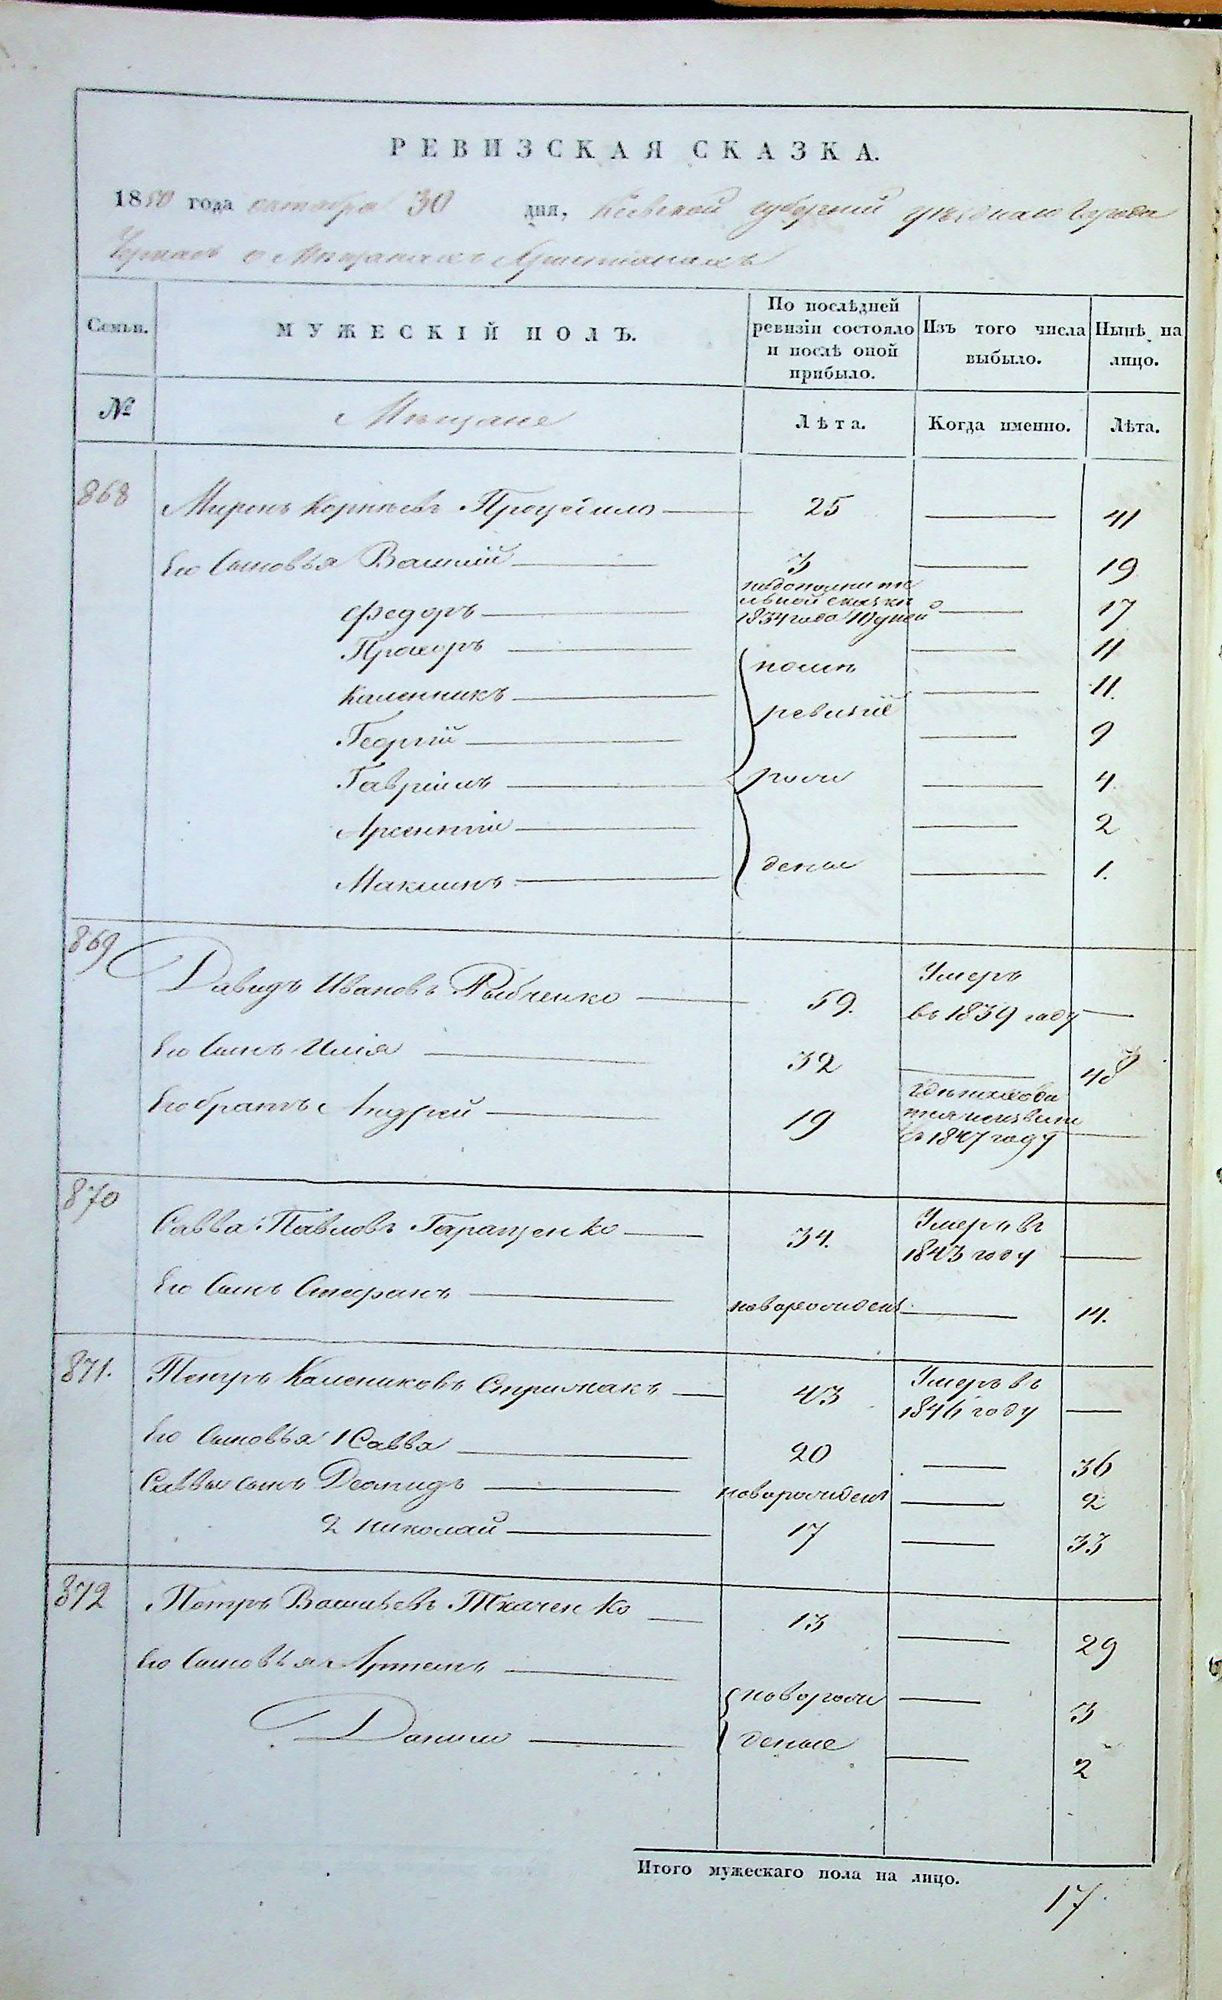 РЕВИЗСКАЯ СКАЗКА.
1850 года октября 30 дня, Киевской губерний уѣзднаго Города
Черкасъ о Мѣщанахъ Христианахъ
Семьи.
МУЖЕСКІЙ ПОЛЪ.
По послѣдней
ревизіи состояло
и послѣ оной
прибыло.
Изъ того числа
выбыло.
Нынѣ на
лицо.
№
Мѣщане
Лѣта.
Когда именно.
Лѣта.
868 Миронъ Корнѣевъ 25 41
Его Сыновья Василій 3 19
Федоръ 1834 года 17
Прохоръ 11
Каленникъ 11.
Георгій 9
Гавріилъ 4
Арсентій 2
Максимъ 1.
послѣ
ревизіи
рож
деные
869 Давидъ Ивановъ Рыбченко 59. Умеръ
въ 1839 году
Его Сынъ Илія 32 48
Его братъ Андрей 19
въ 1847 году
870 Савва Павловъ Геращенко 34. Умеръ въ
1843 году
Его Сынъ Стефанъ новорожденъ 14.
871. Петръ Калениковъ Стрижакъ 43 Умеръ въ
1846 году
Его Сыновья 1 Савва 20 36
Саввы сынъ новорожденъ 2
2 Николай 17 33
872 Петръ Васильевъ Ткаченко 13 29
Его Сыновья Артемъ 3
Данило 2
новорож
деные
Итого мужескаго пола на лицо.
17